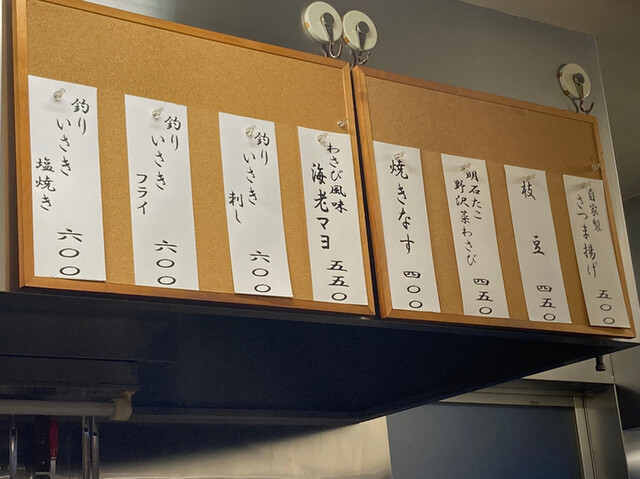 自家製
さつま揚げ
五〇〇
枝豆
四五〇
明石たこ
野沢菜わさび
四五〇
焼きなす
四〇〇
わさび風味
海老マヨ
五五〇
釣り
いさき
刺し
六〇〇
釣り
いさき
フライ
六〇〇
釣り
いさき
塩焼き
六〇〇